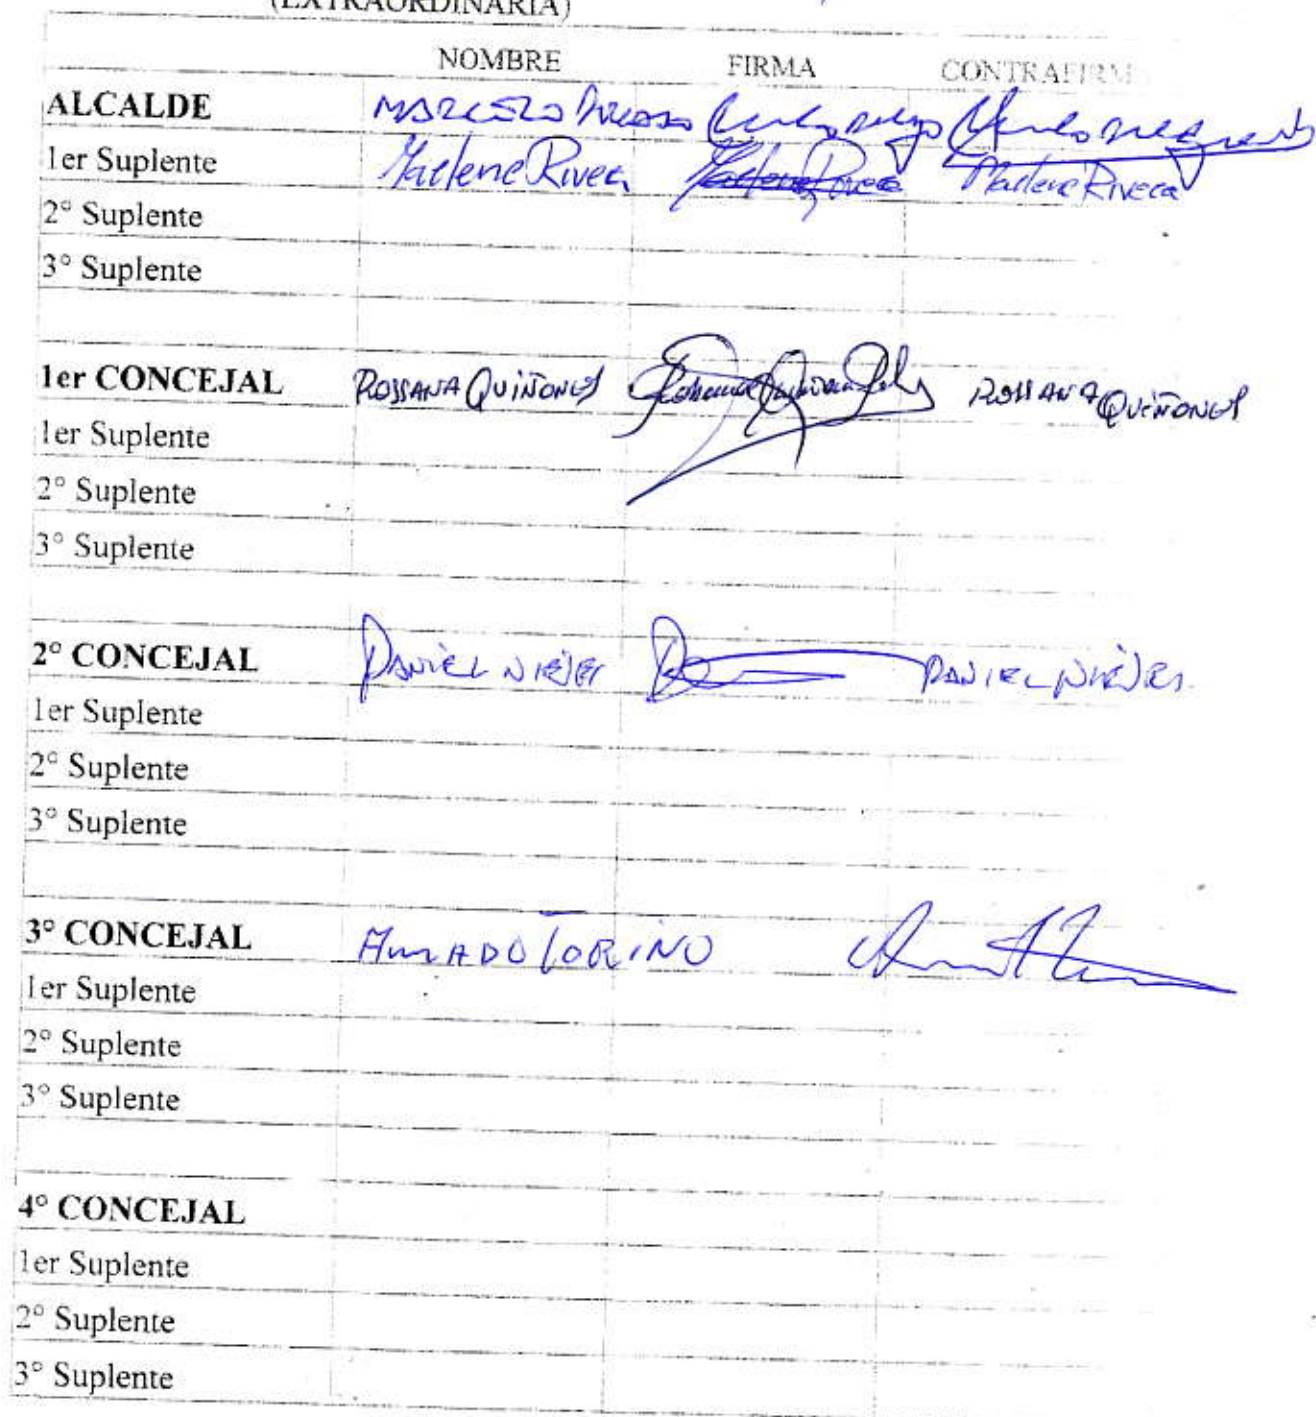 (EXTRAORDINARIA)
NOMBRE FIRMA CONTRAFIRMA
ALCALDE MARCELO
1er Suplente Marlene Rivera Marlene Rivera Marlene Rivera
2° Suplente
3° Suplente
1er CONCEJAL ROSSANA QUIÑONES ROSSANA QUIÑONES
1er Suplente
2° Suplente
3° Suplente
2° CONCEJAL DANIEL NIEVES DANIEL NIEVES.
1er Suplente
2° Suplente
3° Suplente
3° CONCEJAL AMADO TORINO
1er Suplente
2° Suplente
3° Suplente
4° CONCEJAL
1er Suplente
2° Suplente
3° Suplente